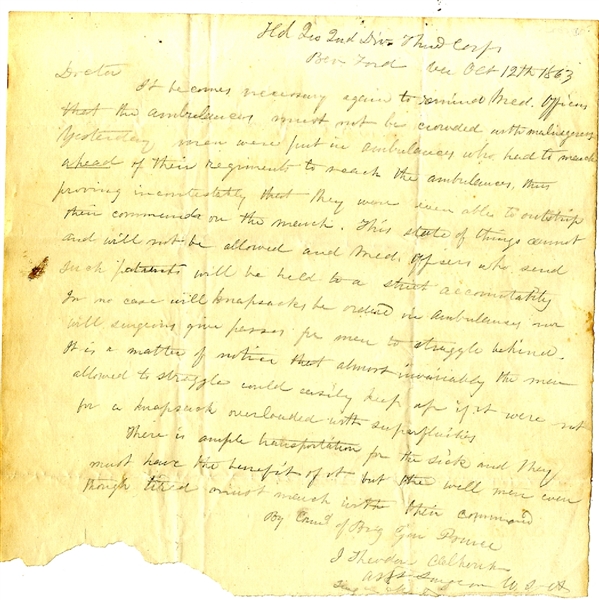 Hd Qrs 2nd Div. Third Corps
Bev. Ford Va Oct 12th 1863
Doctor
It becomes necessary again to remind Med. Officers
that the ambulances must not be crowded with malingerers
Yesterday men were put in ambulances who had to march
ahead of their regiments to reach the ambulances, thus
proving incontestibly that they were even able to outstrip
their commands on the march. This state of things cannot
and will not be allowed and Med. Officers who send
such patients will be held to a strict accountability
In no case will knapsacks be ordered in ambulances nor
will surgeons give passes for men to straggle behind.
It is a matter of notice that almost invariably the men
allowed to straggle could easily keep up if it were not
for a knapsack overloaded with superfluities
There is ample transportation for the sick and they
must have the benefit of it but the well men even
though tired must march with their command
By Comd of Brig Gen Prince
J Theodore Calhoun
Asst Surgeon U.S.A